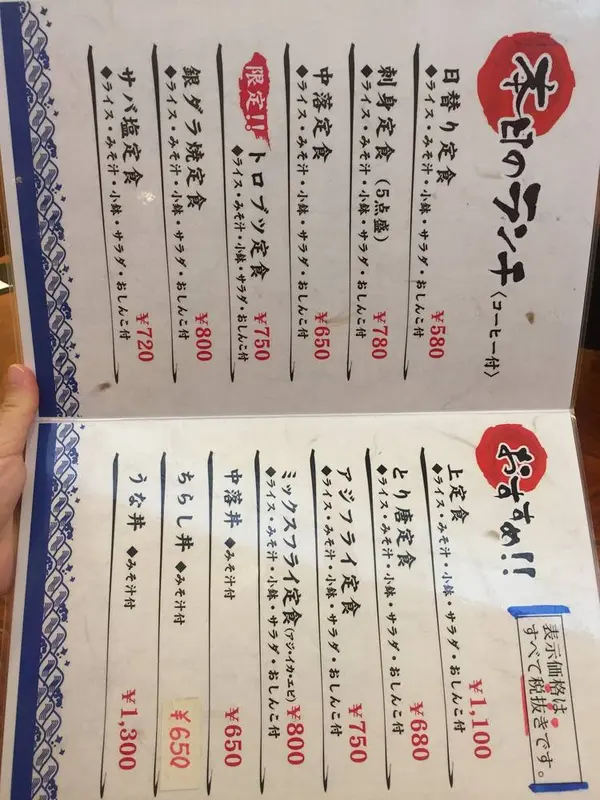 本日のランチ〈コーヒー付〉
日替り定食
◆ライス・みそ汁・小鉢・サラダ・おしんこ付
¥580
刺身定食(5点盛)
◆ライス・みそ汁・小鉢・サラダ・おしんこ付
¥780
中落定食
◆ライス・みそ汁・小鉢・サラダ・おしんこ付
¥650
限定!!
トロブツ定食
◆ライス・みそ汁・小鉢・サラダ・おしんこ付
¥750
銀ダラ焼定食
◆ライス・みそ汁・小鉢・サラダ・おしんこ付
¥800
サバ塩定食
◆ライス・みそ汁・小鉢・サラダ・おしんこ付
¥720
おすすめ!!
表示価格は
すべて税抜きです。
上定食
◆ライス・みそ汁・小鉢・サラダ・おしんこ付
¥1,100
とり唐定食
◆ライス・みそ汁・小鉢・サラダ・おしんこ付
¥680
アジフライ定食
◆ライス・みそ汁・小鉢・サラダ・おしんこ付
¥750
ミックスフライ定食(アジ・イカ・エビ)
◆ライス・みそ汁・小鉢・サラダ・おしんこ付
¥800
中落丼 ◆みそ汁付
¥650
ちらし丼 ◆みそ汁付
¥650
うな丼 ◆みそ汁付
¥1,300